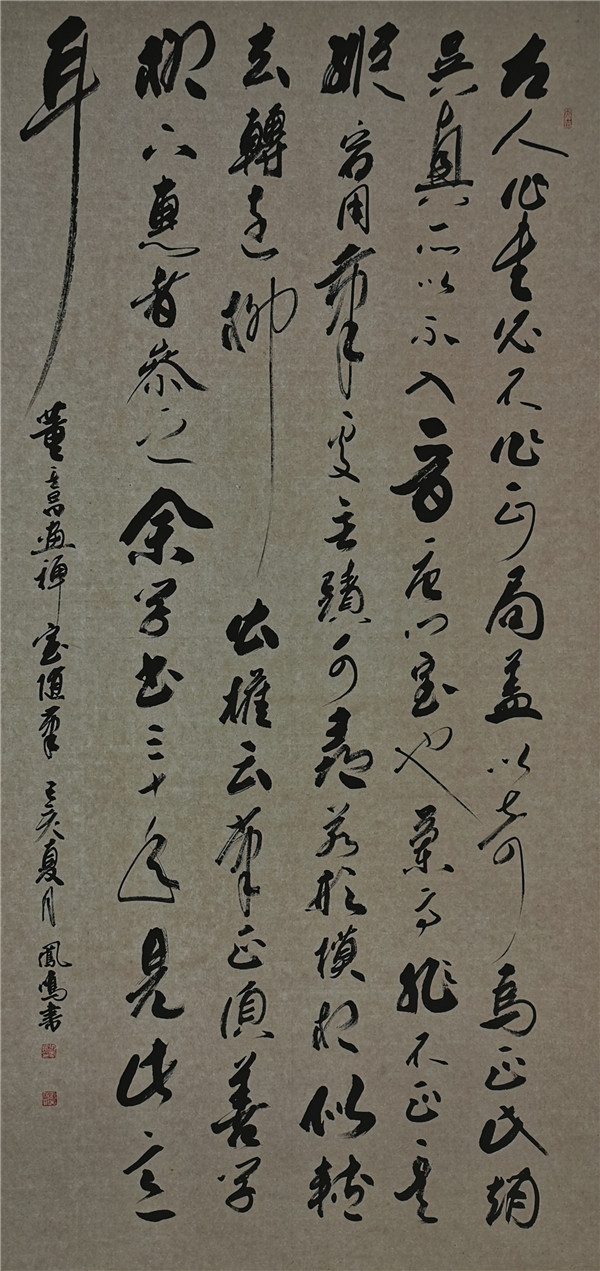 古人作書必不作正局蓋以奇爲正此趙
吳興所以不入晉唐門室也蘭亭非不正其
縱宕用筆處無蹟可尋若形模相似轉
去轉遠柳公權云筆正須善學
柳下惠者參之余學書三十年見此意
耳
董其昌畫禪室隨筆 己亥夏月 鳳鳴書